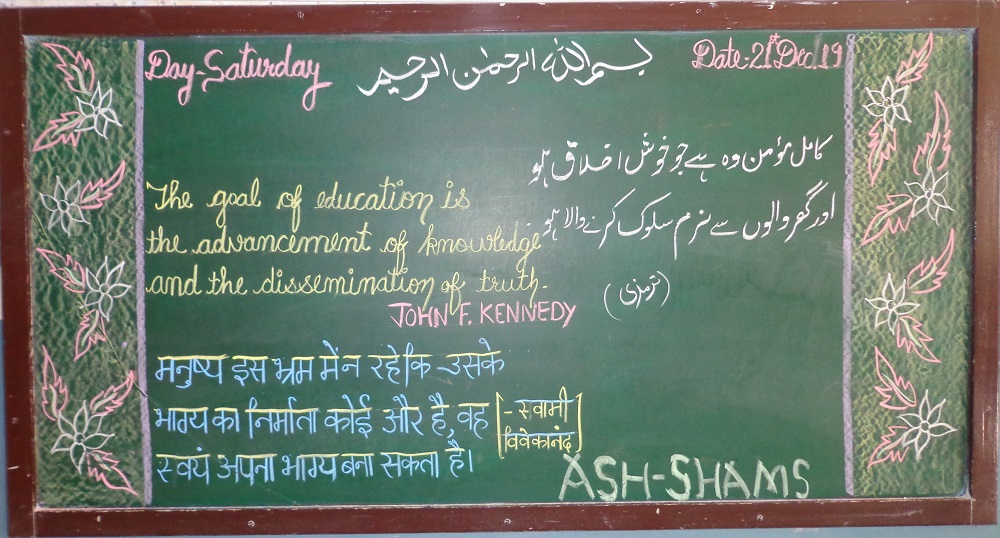 Day-Saturday
بسم الله الرحمٰن الرحیم
Date-21st Dec.19
کامل مؤمن وہ ہے جو خوش اخلاق ہو
اور گھر والوں سے نرم سلوک کرنے والا ہو۔
(ترمذی)
The goal of education is
the advancement of knowledge
and the dissemination of truth.
JOHN F. KENNEDY
मनुष्य इस भ्रम में न रहे कि उसके
भाग्य का निर्माता कोई और है, वह
स्वयं अपना भाग्य बना सकता है।
[- स्वामी
विवेकानंद]
ASH-SHAMS